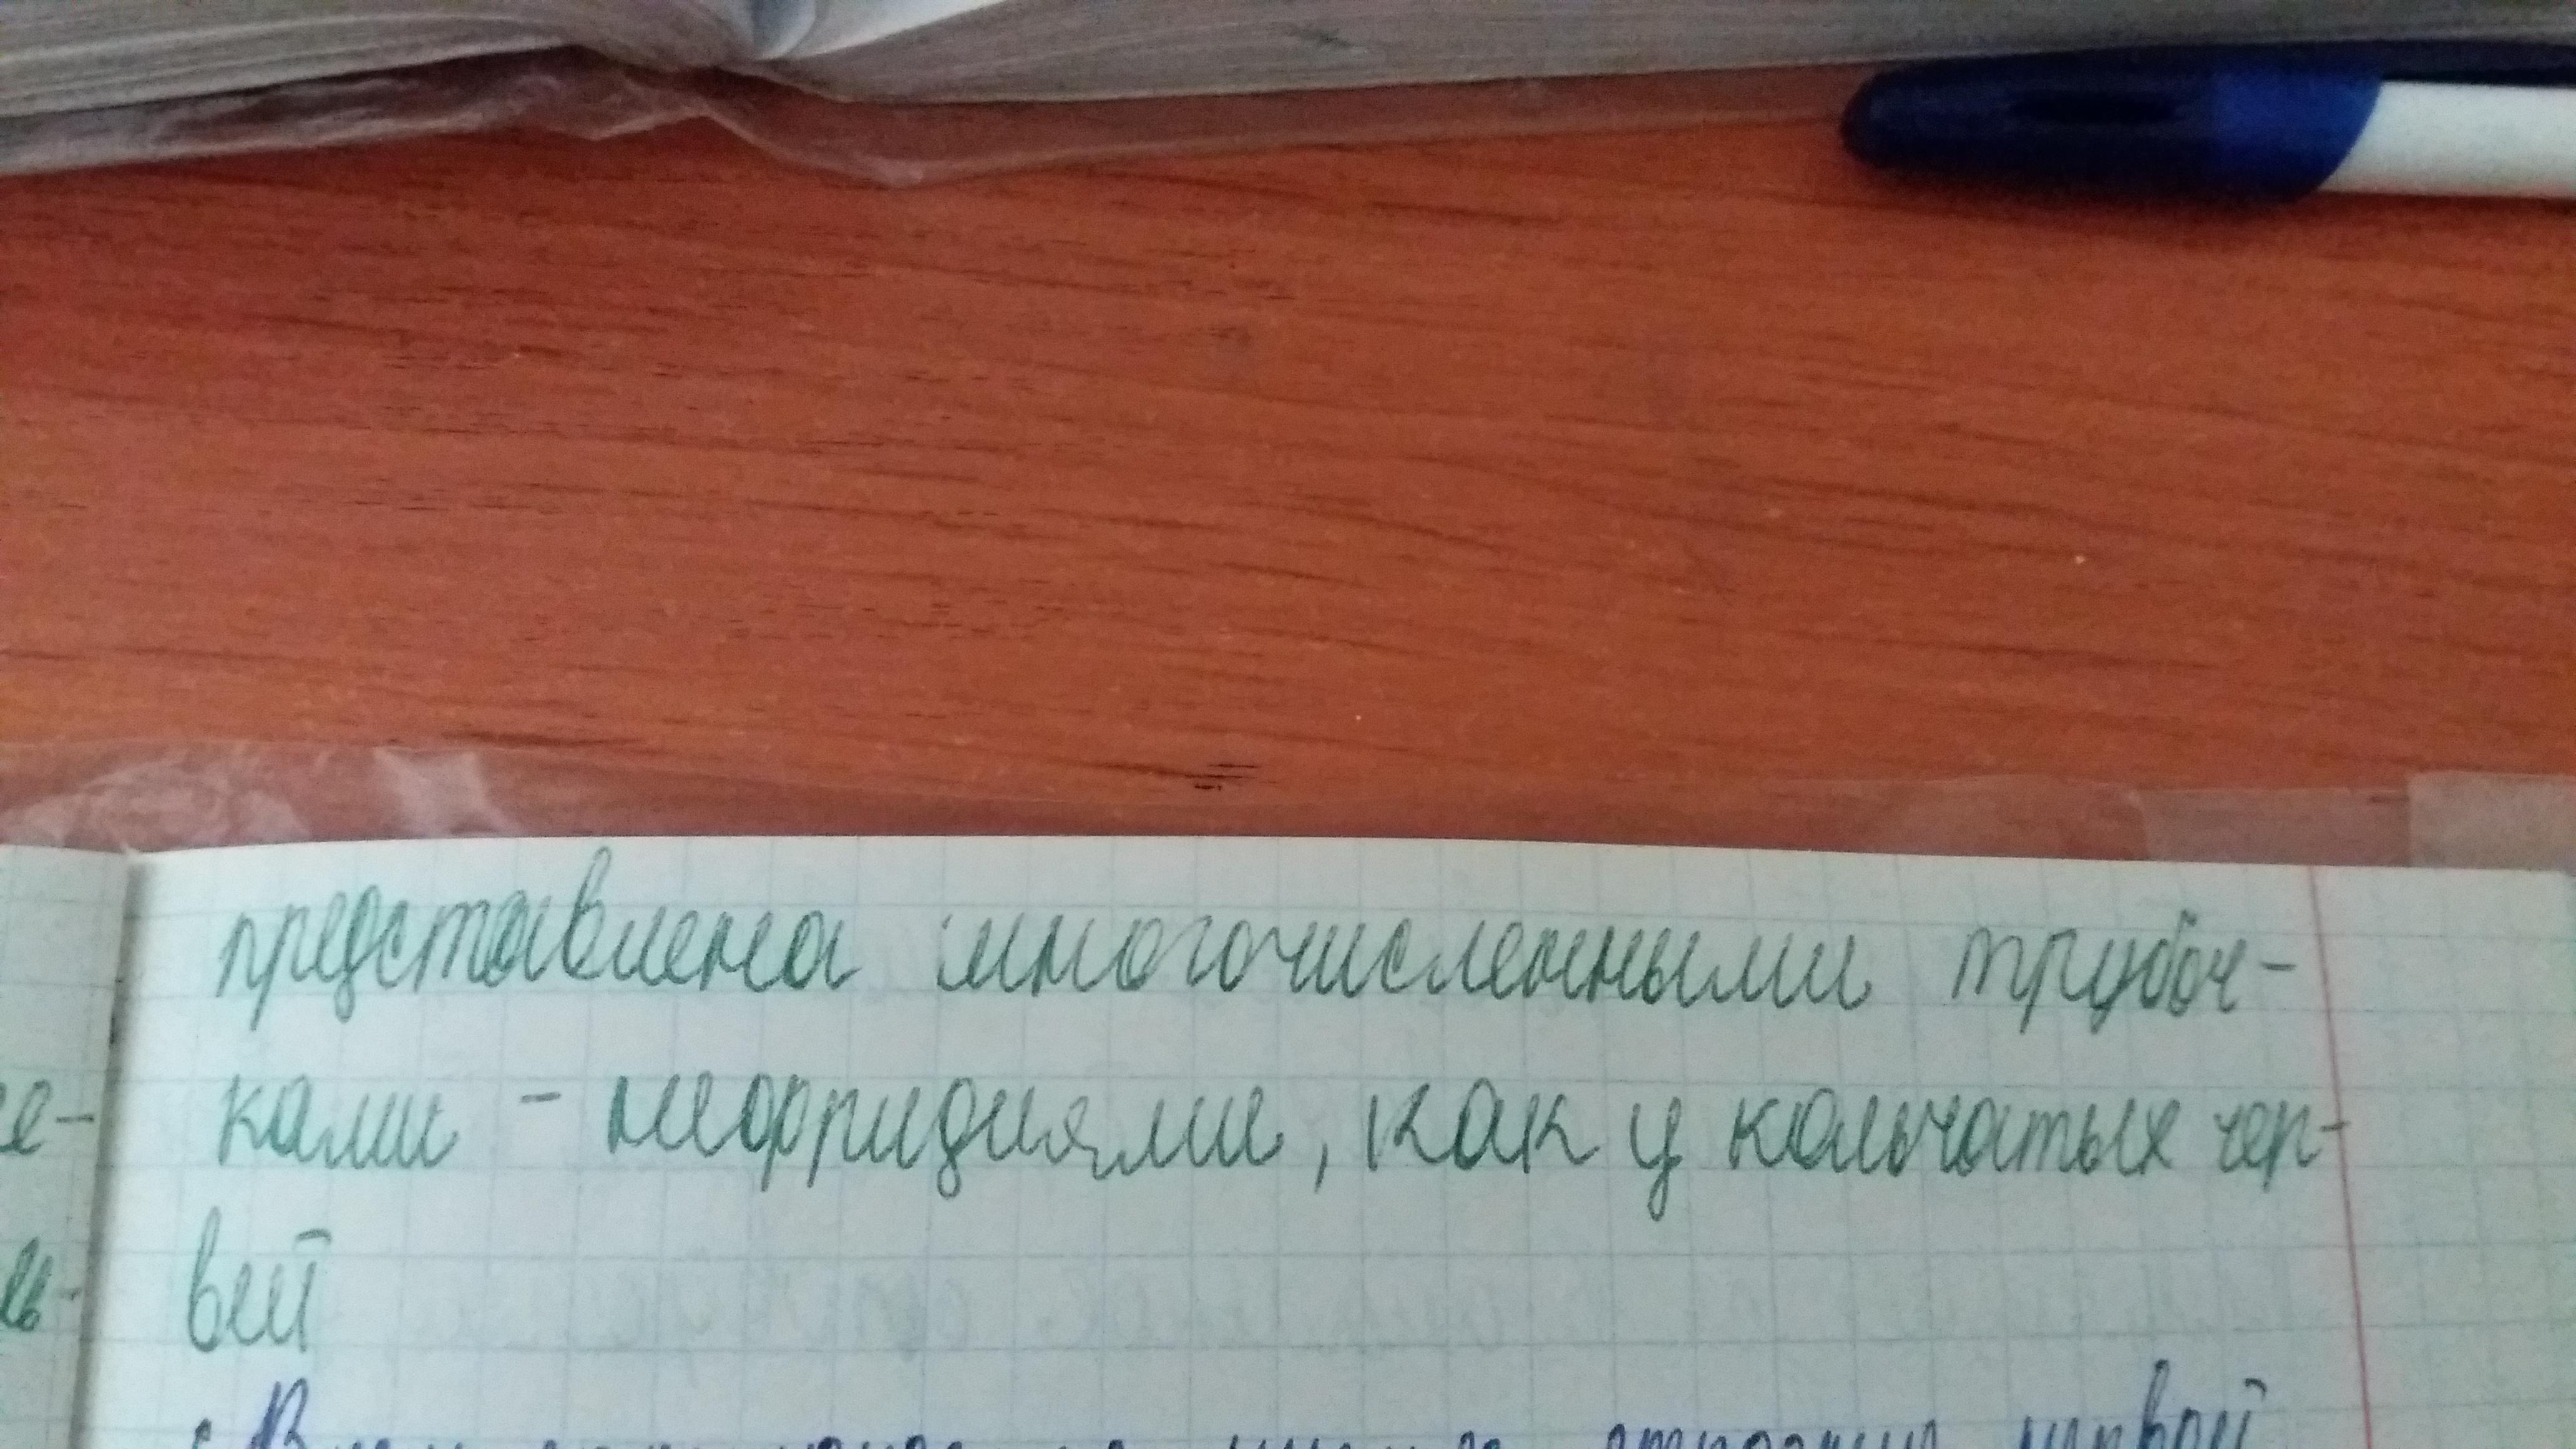 представлена многочисленными трубоч-
ками - неофридиями, как у кольчатых чер-
вей